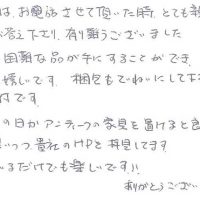 は、お電話させて頂いた時、とても親
答え下さり、有り難うございました
困難な品が手にすることができ、
嬉しいです。 梱包もていねいにして下
付です。
の日かアンティークの家具を置けると良
いつつ貴社のHPを拝見してます
いるだけでも楽しいです!!
ありがとうござい